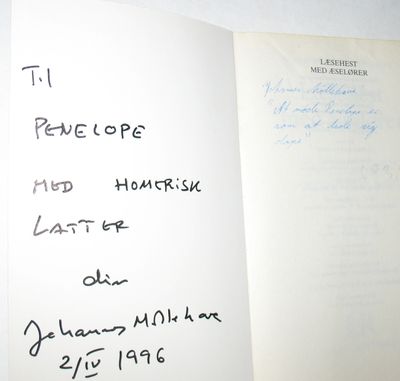 Til
PENELOPE
MED HOMERISK
LATTER
din
Johannes Møllehave
2/IV 1996
LÆSEHEST
MED ÆSELØRER
Johannes Møllehave
"At møde Penelope er
som at lede sig